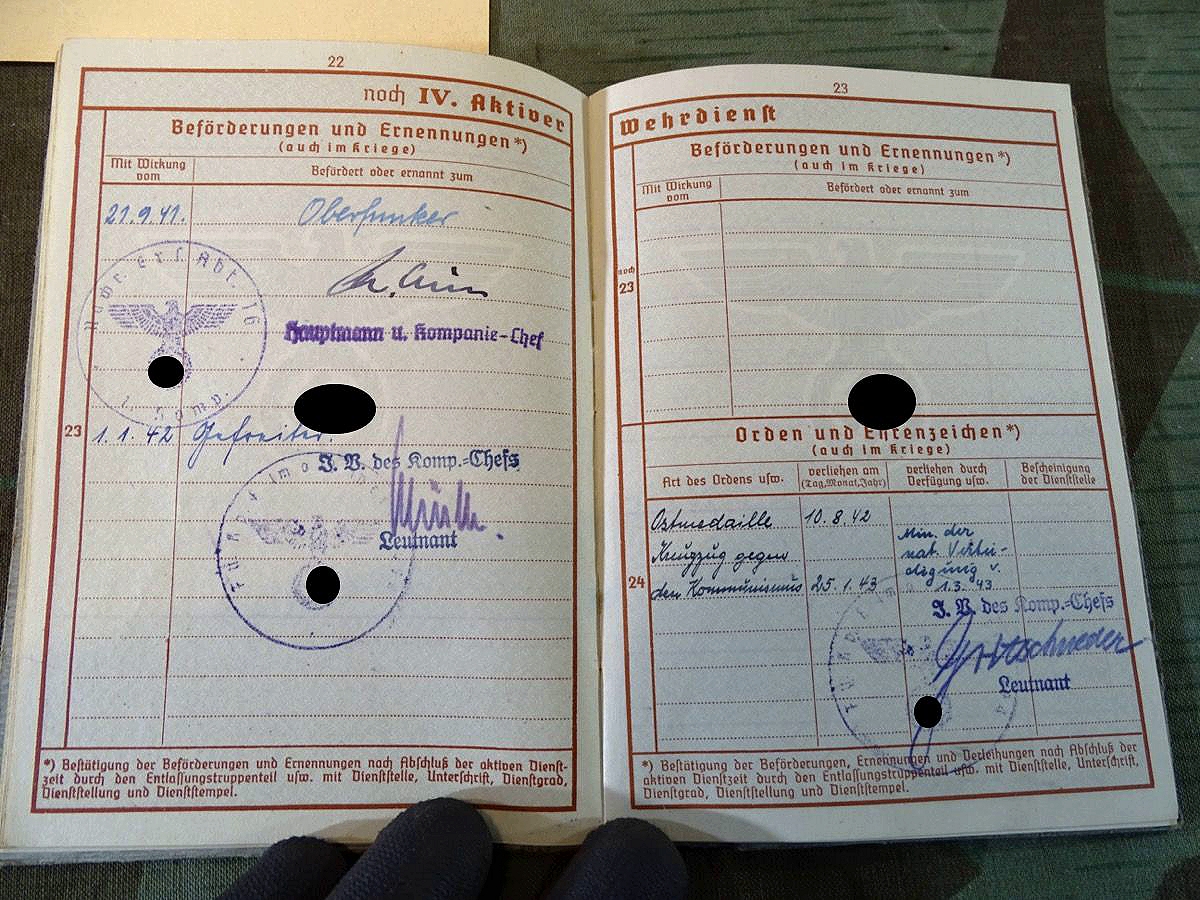 22
noch IV. Aktiver
Beförderungen und Ernennungen*)
(auch im Kriege)
Mit Wirkung vom
Befördert oder ernannt zum
21.9.41. Oberfunker
Hauptmann u. Kompanie-Chef
Abt. 16
1. Komp.
23
1.1.42 Gefreiter.
J. V. des Komp.-Chefs
Leutnant
*) Bestätigung der Beförderungen und Ernennungen nach Abschluß der aktiven Dienst-
zeit durch den Entlassungstruppenteil usw. mit Dienststelle, Unterschrift, Dienstgrad,
Dienststellung und Dienststempel.
23
Wehrdienst
Beförderungen und Ernennungen*)
(auch im Kriege)
Mit Wirkung vom
Befördert oder ernannt zum
noch
23
Orden und Ehrenzeichen*)
(auch im Kriege)
Art des Ordens usw.
verliehen am
(Tag, Monat, Jahr)
verliehen durch
Verfügung usw.
Bescheinigung
der Dienststelle
Ostmedaille 10.8.42
Kreuzzug gegen
den Kommunismus 25.1.43
Min. der
nat. Vertei-
digung v.
1.3.43.
24
J. V. des Komp.-Chefs
Leutnant
*) Bestätigung der Beförderungen, Ernennungen und Verleihungen nach Abschluß der
aktiven Dienstzeit durch den Entlassungstruppenteil usw. mit Dienststelle, Unterschrift,
Dienstgrad, Dienststellung und Dienststempel.